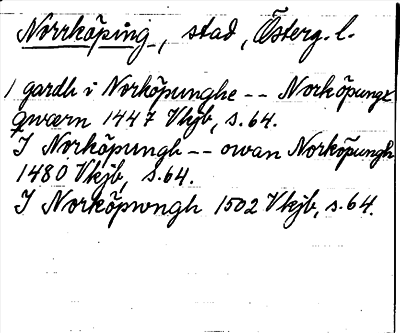 Norrköping, stad, Österg. l.
1 gardh i Norköpunghe -- Norköpungx
qwærn 1447 Vkjb, s. 64.
I Norköpungh -- owan Norköpungh
1480 Vkjb, s. 64.
I Norköpwngh 1502 Vkjb, s. 64.